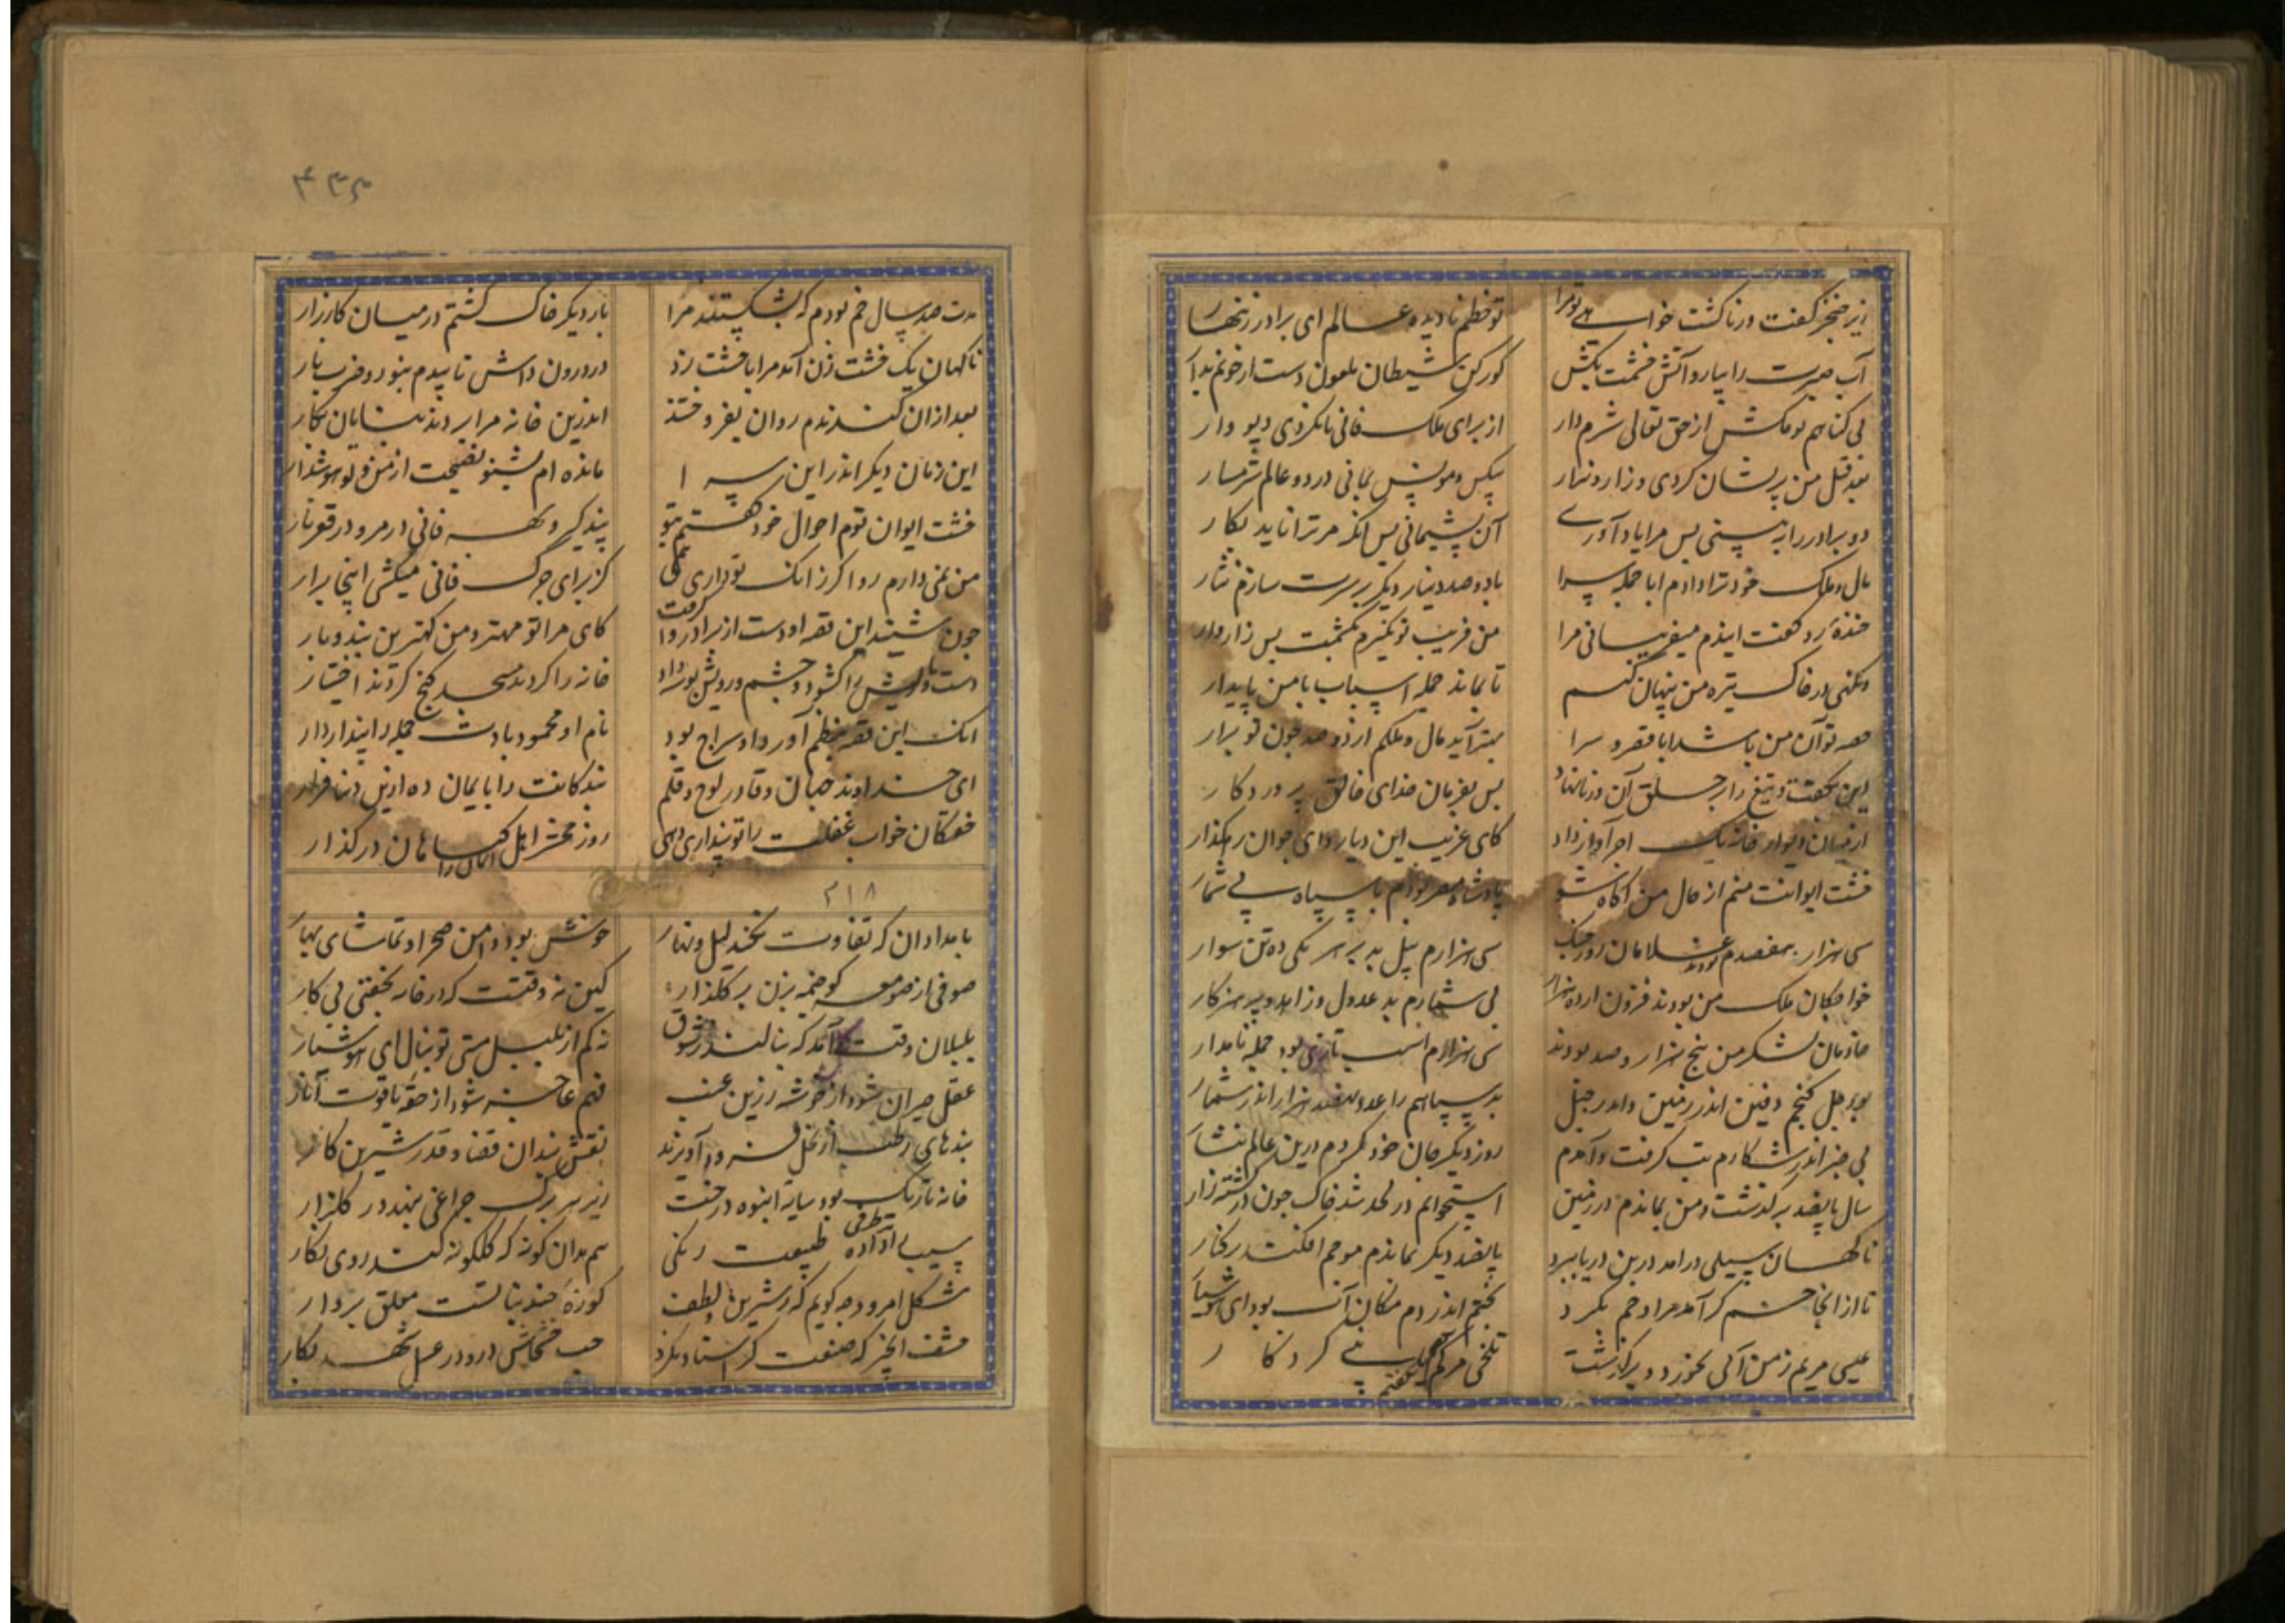 زیر خنجر گفت ورنا گشت خواهی تو مرا
تو خطم نادیده عالم ای برادر زنهار
آب صبرت را بیار و آتش خشمت بکش
کور کن شیطان ملعون دست از خونم بدار
بی گناهم تو مکش از حق تعالی شرم دار
از برای ملک فانی تا نکردی دیو وار
بعد قتل من پریشان کردی و زار و نزار
بیکس و مونس بمانی در دو عالم شرمسار
دو برادر را ببینی بس مرا یاد آوری
آن پشیمانی بس آنکه مر ترا ناید بکار
مال و ملک خود ترا دادم ابا جمله سرا
با دو صد دینار دیگر بر سرت سازم نثار
خنده زد گفت ایندم میفریبانی مرا
من فریب تو نگیرم بکشمت بس زار وار
و نگهی در خاک تیره من پنهان کنم
تا بماند جمله اسباب با من پایدار
حصه تو آن من باشد ابا قصر و سرا
بهتر آید مال و ملکم از دو صد چون تو برار
این بگفت و تیغ را بر حلق آن ورنا نهاد
بس بفرمان خدای خالق پروردگار
از میان دیوار خانه یک آجر آواز داد
کای غریب این دیار و ای جوان رهگذار
خشت ایوانت منم از حال من آگاه شو
پادشاه مصر بودم با سپاه بی شمار
سی هزار و هفصدم بودند غلامان روز جنگ
سی هزارم پیل بد بر هر یکی ده تن سوار
خواجگان ملک من بودند فزون از ده هزار
بی شمارم بد عدول و زاهد و پرهیزکار
خادمان لشکر من پنج هزار و صد بودند
سی هزارم اسب تازی بود جمله نامدار
بود چل گنجم دفین اندر زمین و اندر جبل
بد سپاهم را عدد هفصد هزار اندر شمار
بی خبر اندر شکارم تب گرفت و آمدم
روز دیگر جان خود کردم درین عالم نثار
سال پانصد بر گذشت و من بماندم در زمین
استخوانم در لحد شد خاک چون در کشته زار
ناگهان سیلی درآمد در بن دریا ببرد
پانصد دیگر بماندم موجم افکند برکنار
تا از آنجا خشم گر آمد مرا و خم بکرد
پختم اندر دم مکان آب بود ای هوشیار
عیسی مریم ز من آبی بخورد و برگذشت
تلخی مرگم بگفتم پنبی کردگار
۴۳۵
مدت صد سال خم بودم که بشکستند مرا
بار دیگر خاک گشتم در میان کارزار
ناگهان یک خشت زن آمد مرا با خشت زد
در درون داش تابیدم بنور و ضرب نار
بعد از آن کندندم روان بفروختند
اندرین خانه مرا بردند بنایان بکار
این زمان دیگر اندر این سرا
مانده ام بشنو نصیحت از من و تو هوشدار
خشت ایوان توم احوال خود گفتم بتو
پند گیر و بهر فانی در مرو در قعر نار
من نمی دارم روا کرز انک تو داری همی
کز برای جرک فانی میکشی اینجا برار
چون شنید این قصه او دست از برادر وا گرفت
کای مرا تو مهتر و من کهترین بنده و یار
دست و پایش را گشود و چشم و رویش بوسه داد
خانه را کردند مسجد گنج کردند اختیار
آنک این قصه بنظم آورد او سراج بود
نام او محمود بادت جمله را پنداردار
ای خداوند جهان و قادر لوح و قلم
بندگانت را با یمان ده ازین دنیا فرار
خفتگان خواب غفلت را تو بیداری دهی
روز محشر اهل ایمان را کساهان در گذار
۲۱۸
بامدادان که تفاوت نکند لیل و نهار
خوش بود دامن صحرا و تماشای بهار
صوفی از صومعه گو خیمه بزن بر گلزار
کین نه وقتست که در خانه بخفتی بی کار
بلبلان وقت گل آمد که بنالند ز شوق
نه کم از بلبل مستی تو بنال ای هوشیار
عقل حیران شود از خوشه زرین عنب
فهم عاجز شود از حقه یاقوت انار
بندهای رطب از نخل فرو آویزند
نقش بندان قضا و قدر شیرین کار
خانه تاریک بود سایه انبوه درخت
زیر هر برگ چراغی بنهد در گلزار
سیب را داده طرفی طبیعت رنگی
هم بدان گونه که گلگونه کند روی نگار
شکل امرود چه گویم که ز شیرینی و لطف
کوزه چند نباتست معلق بر دار
حشف انجیر که صنعت گر استاد بکرد
حب خشخاش درو در عسل شهد بکار